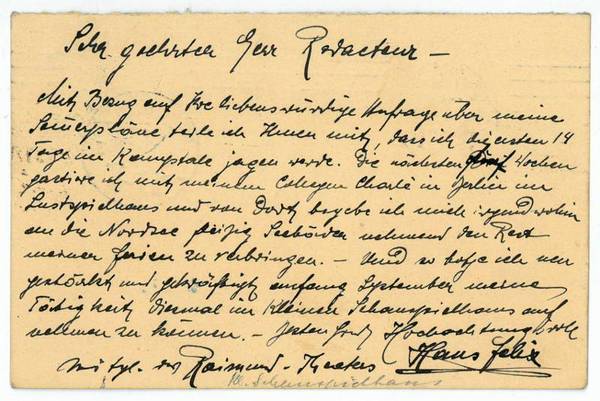 Sehr geehrter Herr Redacteur —
Mit Bezug auf Ihre liebenswürdige Anfrage über meine
Sommerpläne teile ich Ihnen mit, dass ich die ersten 14
Tage im Kamptale jagen werde. Die nächsten Wochen
gastire ich mit meinem Collegen Charlé in Berlin im
Lustspielhaus und von Dort begebe ich mich irgendwohin
an die Nordsee fleißig Seebäder nehmend den Rest
meiner Ferien zu verbringen. — Und so hoffe ich neu
gestärkt und gekräftigt anfang September meine
Tätigkeit diesmal im Kleinen Schauspielhaus auf
nehmen zu können. — Hochachtungsvoll
Hans Felix
Mitgl. des Raimund-Theaters
Kl. Schauspielhaus